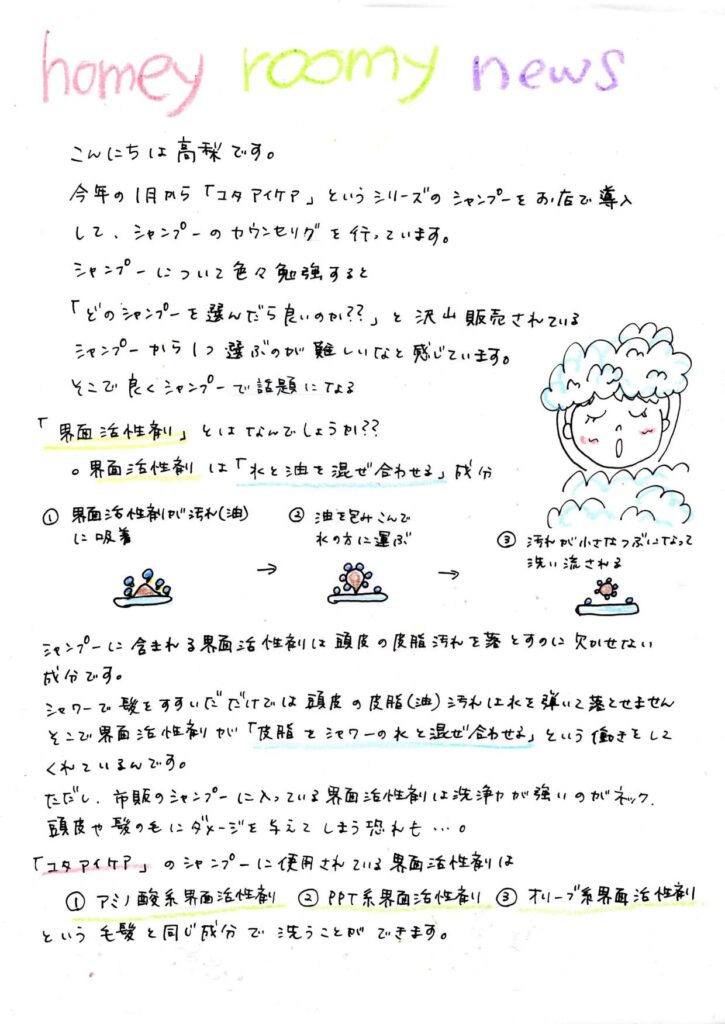 homey roomy news
こんにちは高梨です。
今年の1月から「コタアイケア」というシリーズのシャンプーをお店で導入
して、シャンプーのカウンセリグを行っています。
シャンプーについて色々勉強すると
「どのシャンプーを選んだら良いのか??」と沢山販売されている
シャンプーから1つ選ぶのが難しいなと感じています。
そこで良くシャンプーで話題になる
「界面活性剤」とはなんでしょうか??
○界面活性剤は「水と油を混ぜ合わせる」成分
① 界面活性剤が汚れ(油)
に吸着
② 油を包みこんで
水の方に運ぶ
③ 汚れが小さなつぶになって
洗い流される
シャンプーに含まれる界面活性剤は頭皮の皮脂汚れを落とすのに欠かせない
成分です。
シャワーで髪をすすいだだけでは頭皮の皮脂(油)汚れは水を弾いて落とせません
そこで界面活性剤が「皮脂とシャワーの水と混ぜ合わせる」という働きをして
くれているんです。
ただし、市販のシャンプーに入っている界面活性剤は洗浄力が強いのがネック、
頭皮や髪の毛にダメージを与えてしまう恐れも…。
「コタアイケア」のシャンプーに使用されている界面活性剤は
① アミノ酸系界面活性剤 ② PPT系界面活性剤 ③ オリーブ系界面活性剤
という毛髪と同じ成分で洗うことができます。